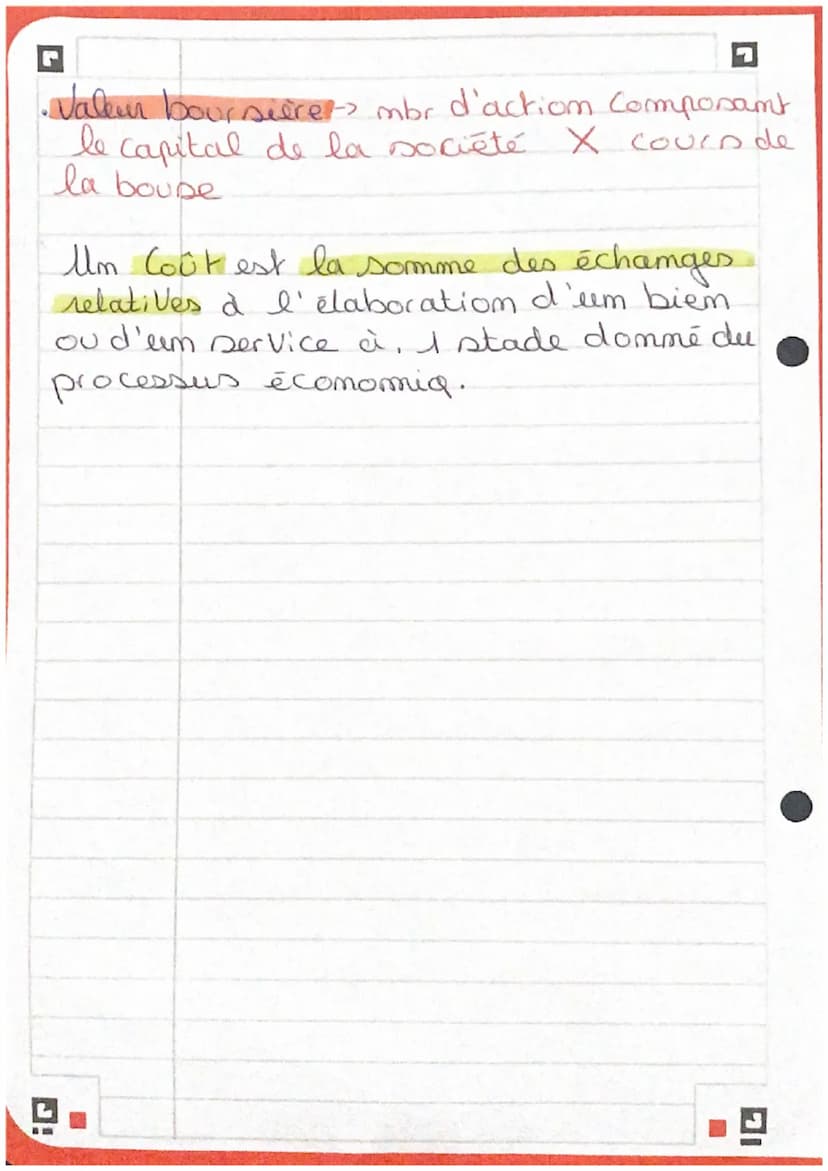 . Valeur boursière -> nbr d'action Composant
le capital de la société X cours de
la bouse
Un Coût est la somme des échanges
relatives à l'élaboration d'un bien
ou d'un service à, 1 stade donné du
processus économiq.